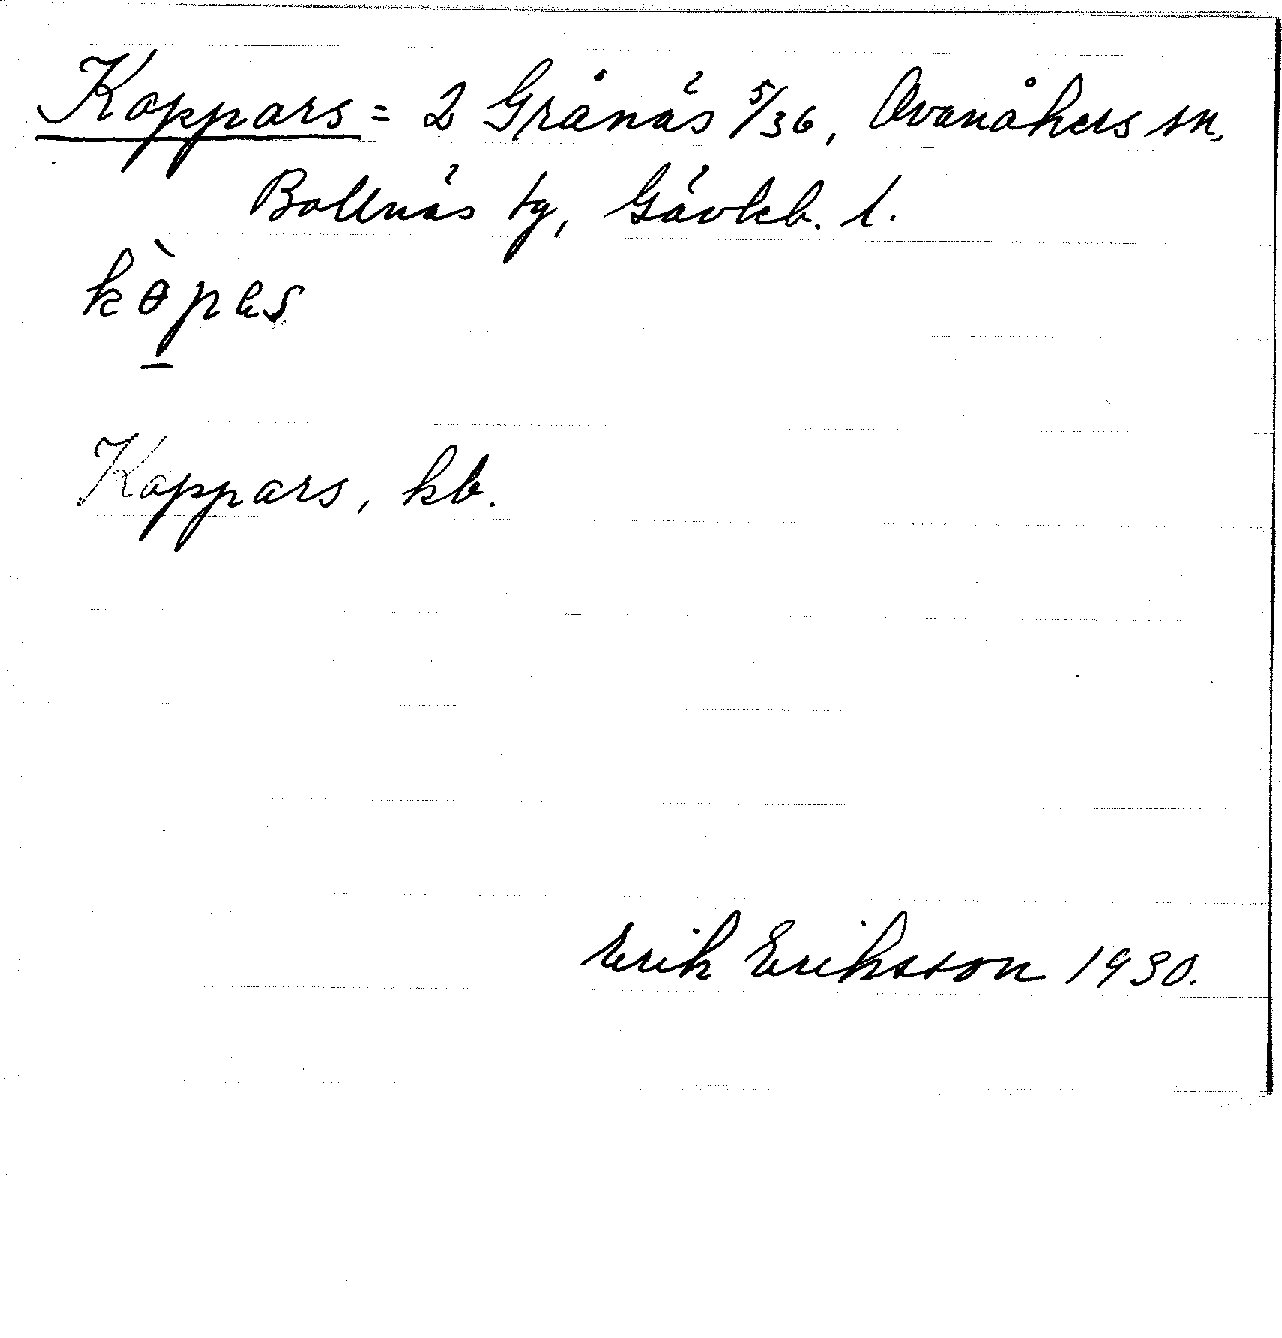 Koppars = 2 Grånäs 5/36, Ovanåkers sn,
Bollnäs tg, Gävleb. l.
kɵ̀p̱es
Koppars, kb.
Erik Eriksson 1930.